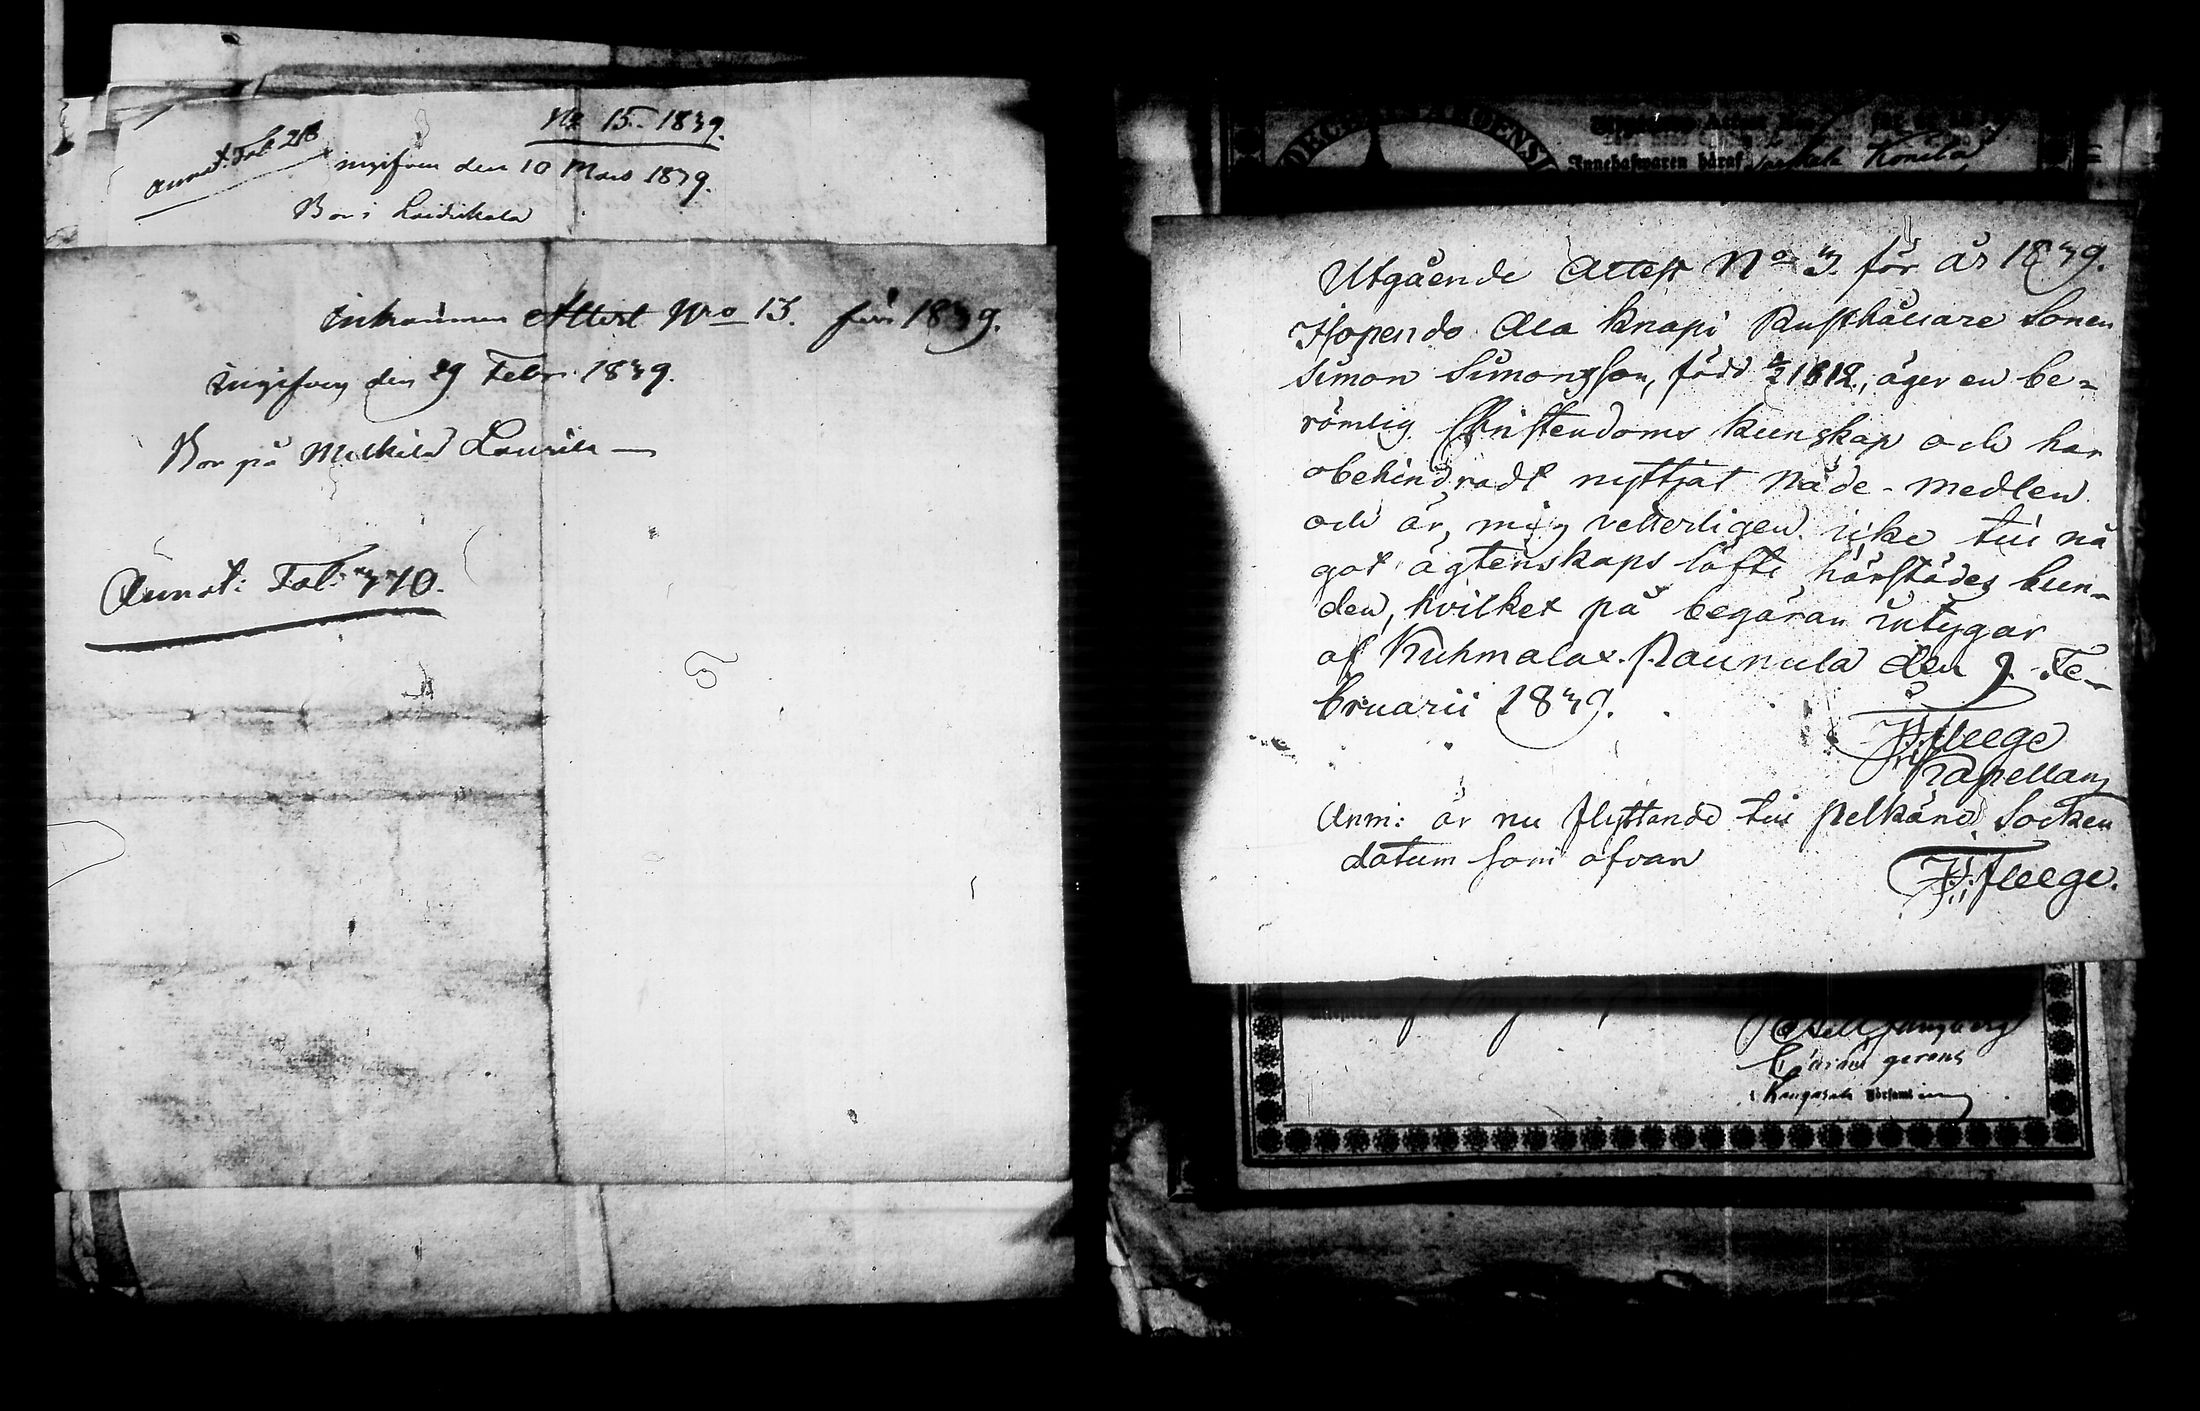 No 15. 1839.
Annot: Fol. 218
ingifven den 10 Mars 1839.
Bor i Laidikala
Inkommen Attest Nro 13. för 1839.
Ingifven den 29 Febr. 1839.
Bor på Mälkilä Laurila
Annot: Fol. 770.
DECR ABOENSI
Innehafwaren häraf
Utgående Attest No 3. för år 1839.
Isopendo Ala Knapi Rusthållare Sonen
Simon Simonsson, född 1812, äger en be=
römlig Christendoms kunskap och har
obehindradt nyttjat Nåde-medlen
och är, mig vetterligen icke till nå
got ägtenskaps löfte härstädes bun-
den, hvilket på begäran intygar
af Kuhmalax. Raunula den 9. Fe-
bruarii 1839.
Fleege
Kapellan
Anm: är nu flyttande till Pelkäne Socken
datum som ofvan
Fleege.
gerens
i Kangasala Församl